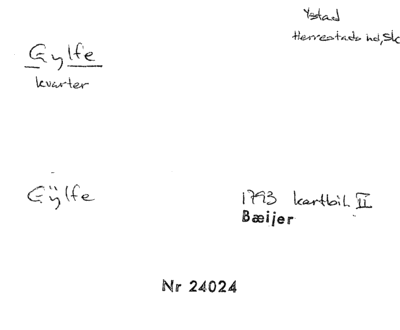 Ystad
Herrestads hd, Sk
Gylfe
kvarter
Gÿlfe
1793 kartbih. II
Bæijer
Nr 24024